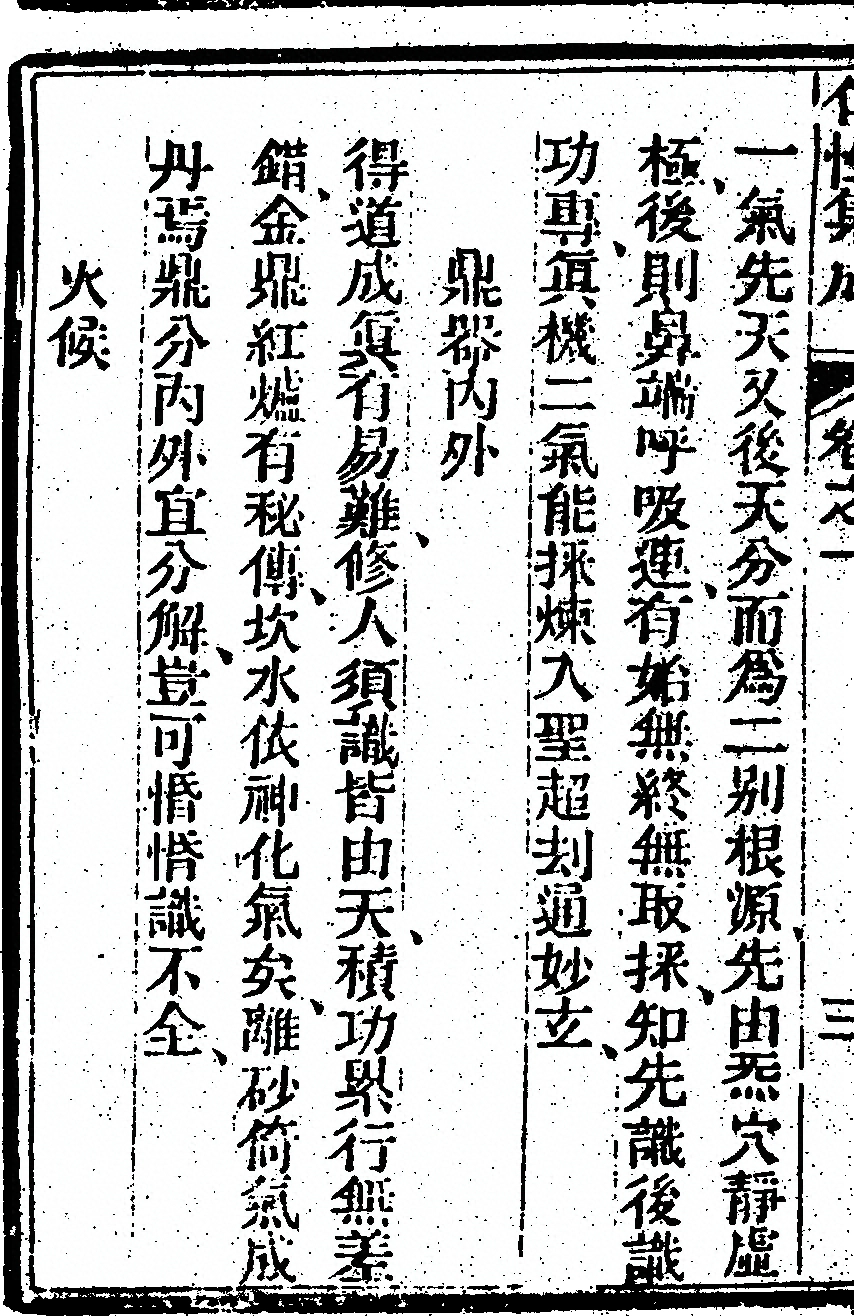 性集成 卷之一 三
一氣先天又後天分而爲二別根源先由炁穴靜虛
極後則鼻端呼吸連有始無終無取採知先識後識
功專眞機二氣能採煉入聖超刦通妙玄
鼎器內外
得道成眞有易難修人須識皆由天積功累行無差
錯金鼎紅爐有秘傳坎水依神化氣矣離砂倚氣成
丹焉鼎分內外宜分解豈可惛惛識不全
火候